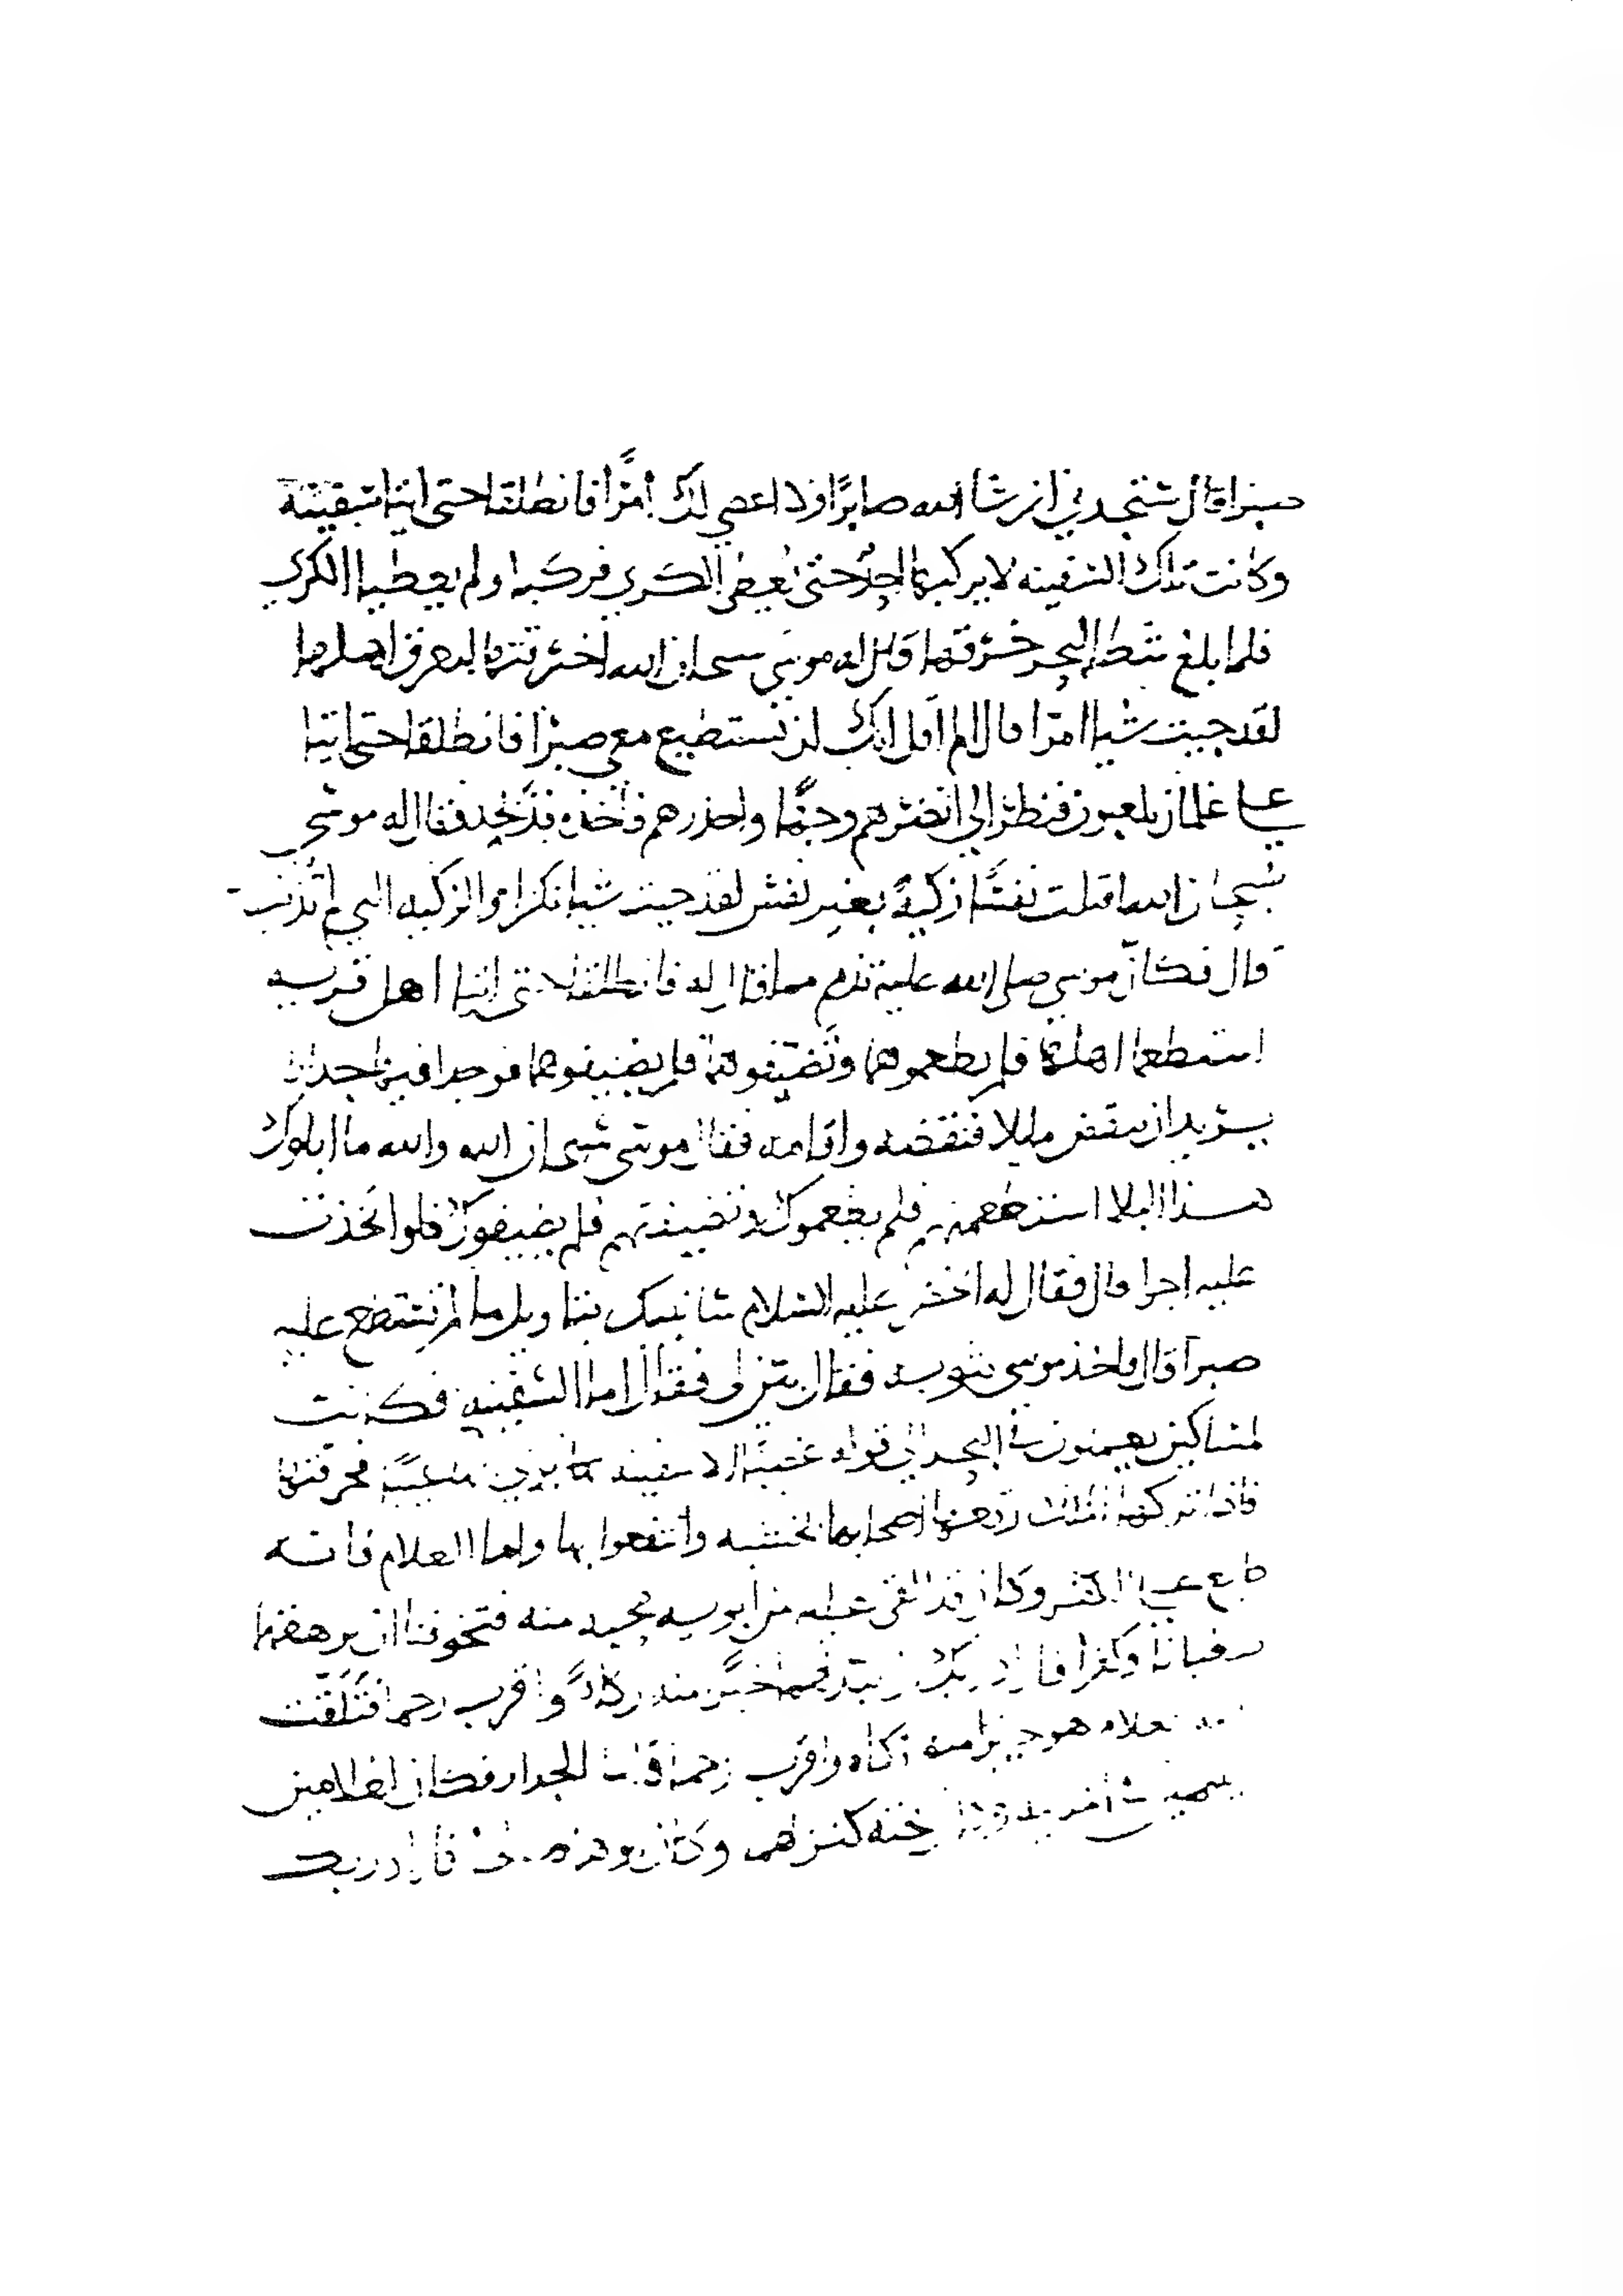 صبرا قال ستجدني ان شا الله صابرًا ولا اعصي لك امرًا فانطلقا حتى اتيا سفينة
وكانت تلك السفينه لا يركبها احدٌ حتى يعطى الكرى فركبا ولم يعطيا الكرى
فلما بلغ شط البحر خرقها وقال له موسى سبحان الله اخرقتها لتغرق اهلها
لقد جيت شيا امرا قال الم اقل انك لن تستطيع معي صبرًا فانطلقا حتى اتيا
على غلمان يلعبون فنظر الى انضرهم وجهًا واحذرهم فاخذه فذبحه فقال له موسى
سبحان الله اقتلت نفسًا زكيةً بغير نفس لقد جيت شيا نكرا والزكيه التي لم تذنب
قال فكان موسى صلى الله عليه تذمم مما قال له فانطلقا حتى اتيا اهل قريه
استطعما اهلها فلم يطعموهما وتضيفوهم فلم يضيفوهما فوجدا فيها جدارا
يريد ان ينقض مايلا فنقضه واقامه فقال موسى سبحان الله والله ما ابلوك
هذا البلا استطعمتهم فلم يطعموك وتضيفتهم فلم يضيفوك فلو اتخذت
عليه اجرا قال فقال له الخضر عليه السلام سانبيك بتاويل ما لم تستطع عليه
صبرا قال فاخذ موسى بثوبه فقال فقال اما السفينه فكانت
لمساكين يعملون في البحر الى قوله غصبًا الا سفينه فخرقتها
فاذا تركها رقعها اصحابها بخشبه وانتفعوا بها واما الغلام فانه
طبع على الكفر وكان قد القي عليه من ابويه محبه منه فتخوفنا ان يرهقهما
طغيانا وكفرا فاراد ربك خيرًا منه زكاةً واقرب رحما فتلقت
بغلام هو خير منه زكاه واقرب رحما قال الجدار فكان لغلامين
يتيمين في المدينه وكان تحته كنز لهما وكان ابوهما صالحا فاراد ربك